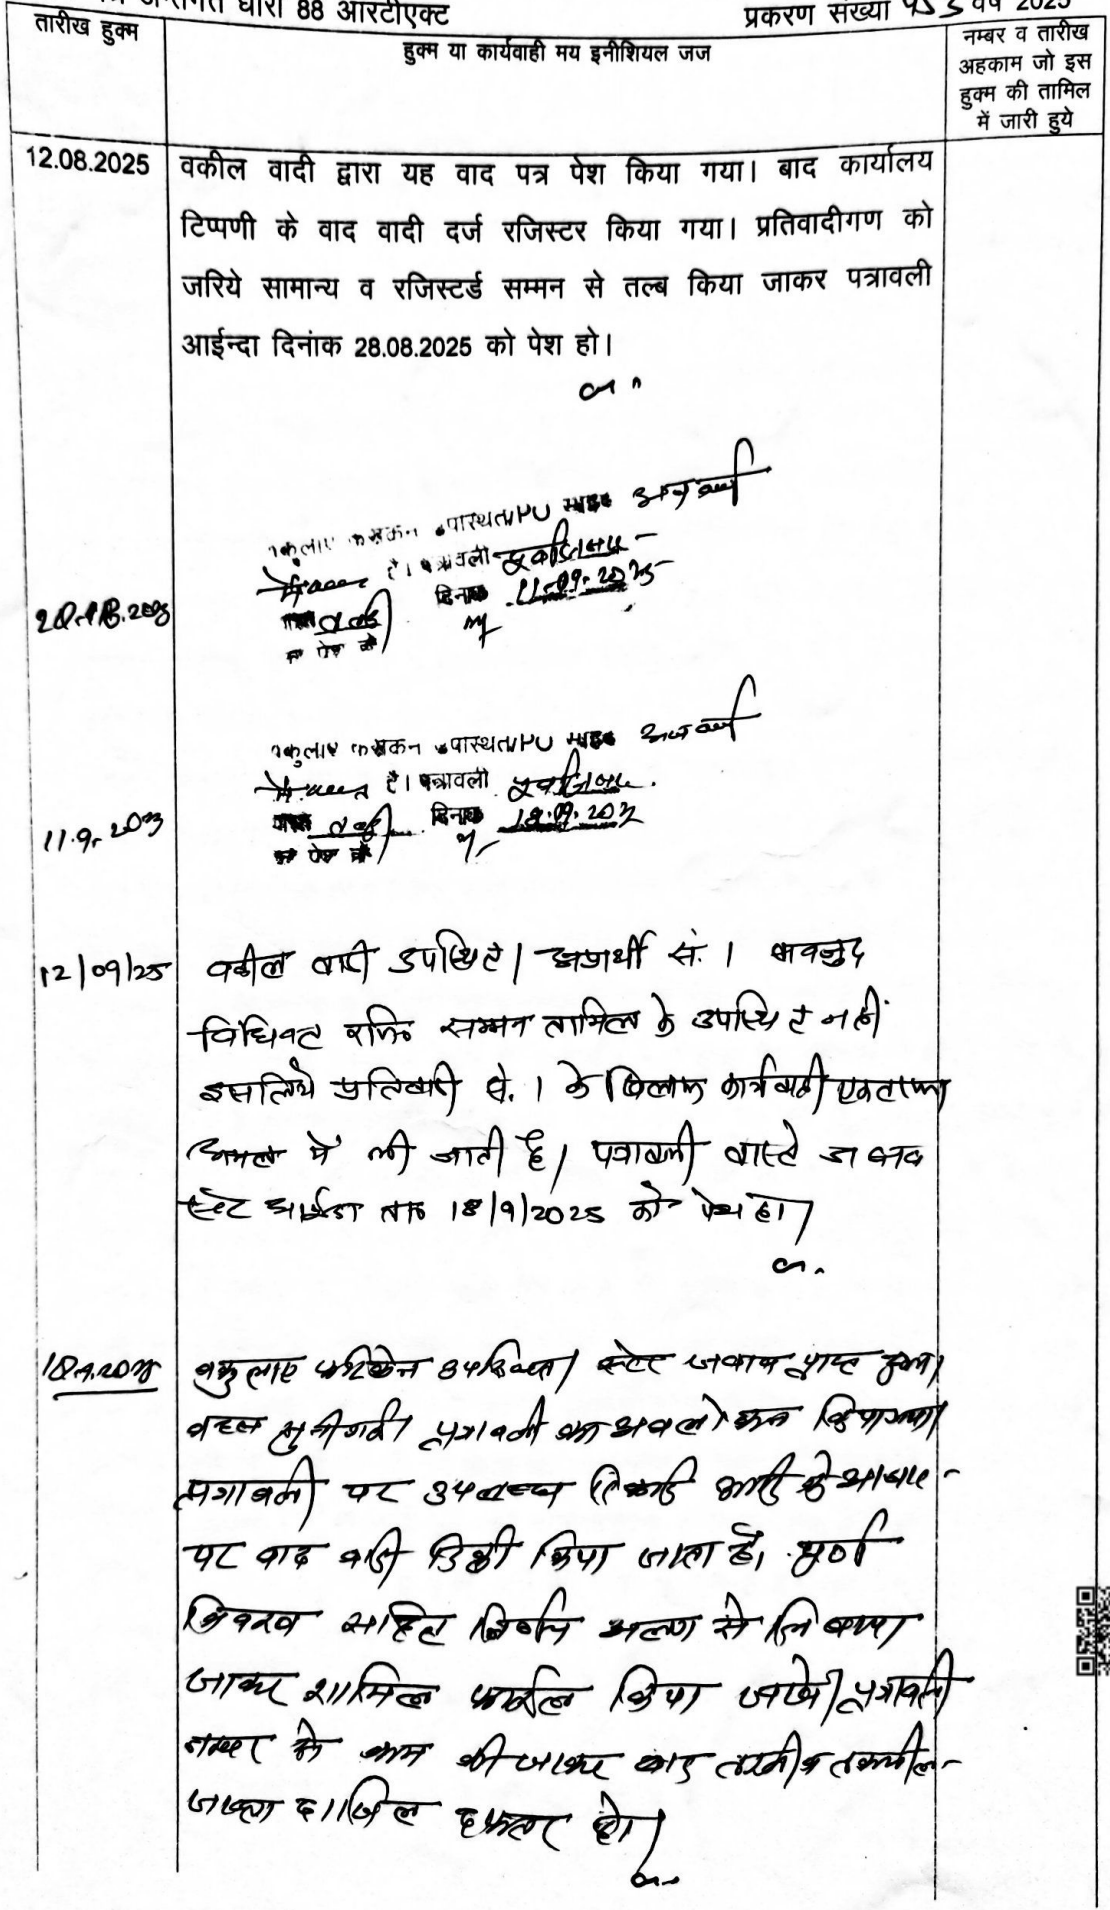 अन्तर्गत धारा 88 आरटीएक्ट
प्रकरण संख्या वर्ष 2025
तारीख हुक्म
हुक्म या कार्यवाही मय इनीशियल जज
नम्बर व तारीख
अहकाम जो इस
हुक्म की तामिल
में जारी हुये
12.08.2025
वकील वादी द्वारा यह वाद पत्र पेश किया गया। बाद कार्यालय
टिप्पणी के वाद वादी दर्ज रजिस्टर किया गया। प्रतिवादीगण को
जरिये सामान्य व रजिस्टर्ड सम्मन से तल्ब किया जाकर पत्रावली
आईन्दा दिनांक 28.08.2025 को पेश हो।
है। पत्रावली
दिनांक 11.09.2025
पेश
है। पत्रावली
11.9.2025
दिनांक 18.09.2025
पेश
12/09/25
वकील वादी उपस्थित। अप्रार्थी सं. 1 बावजुद
विधिवत रजि सम्मन तामिल के उपस्थित नहीं
इसलिये प्रतिवादी सं. 1 के खिलाफ कार्यवाही एकतरफा
अमल में ली जाती है। पत्रावली वास्ते जवाब
स्टेट आईन्दा ता० 18/9/2025 को पेश हो।
18.9.2025
वकुलाए फरिकेन उपस्थित। स्टेट जवाब प्राप्त हुआ।
बहस सुनी गयी। पत्रावली का अवलोकन किया गया।
पत्रावली पर उपलब्ध रिकार्ड आदि के आधार
पर वाद वादी डिक्री किया जाता है। पूर्ण
विवरण सहित निर्णय अलग से लिखाया
जाकर शामिल फाईल किया जावे। पत्रावली
नम्बर से कम की जाकर बाद तरमीम तकमील
जाब्ता दाखिल दफ्तर हो।